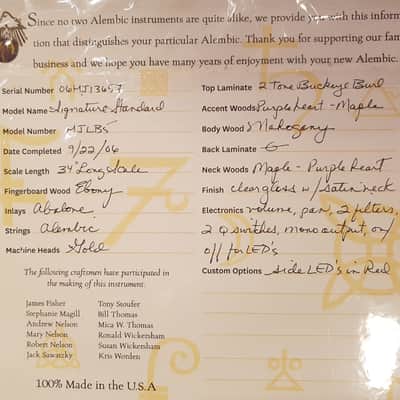 Since no two Alembic instruments are quite alike, we provide you with this informa
tion that distinguishes your particular Alembic. Thank you for supporting our fam
business and we hope you have many years of enjoyment with your new Alembic.
Serial Number 06MJ13657
Model Name Signature Standard
Model Number MJLB5
Date Completed 9/22/06
Scale Length 34" Long Scale
Fingerboard Wood Ebony
Inlays Abalone
Strings Alembic
Machine Heads Gold
Top Laminate 2 Tone Buckeye Burl
Accent Woods Purpleheart - Maple
Body Wood Mahogany
Back Laminate
Neck Woods Maple - Purpleheart
Finish clear gloss w/ satin neck
Electronics volume, pan, 2 filters,
2 Q switches, mono output, on/
off for LED's
Custom Options side LED's in Red
The following craftsmen have participated in
the making of this instrument.
James Fisher
Stephanie Magill
Andrew Nelson
Mary Nelson
Robert Nelson
Jack Sawatzky
Tony Stoufer
Bill Thomas
Mica W. Thomas
Ronald Wickersham
Susan Wickersham
Kris Worden
100% Made in the U.S.A